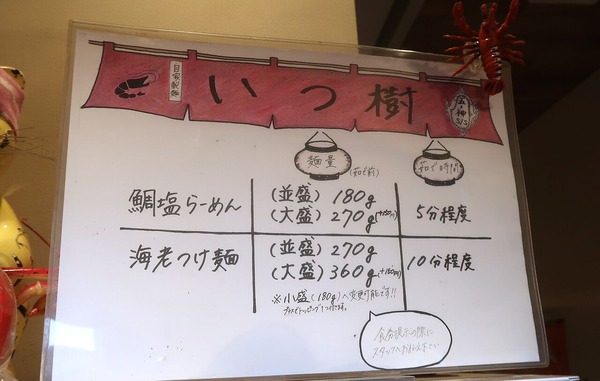 自家製麺
いつ樹
麺量
(茹で前)
茹で時間
鯛塩らーめん
(並盛) 180g
(大盛) 270g
5分程度
海老つけ麺
(並盛) 270g
(大盛) 360g
10分程度
※小盛(180g)へ変更可能です!!
食券提示の際に
スタッフへお伝え下さい